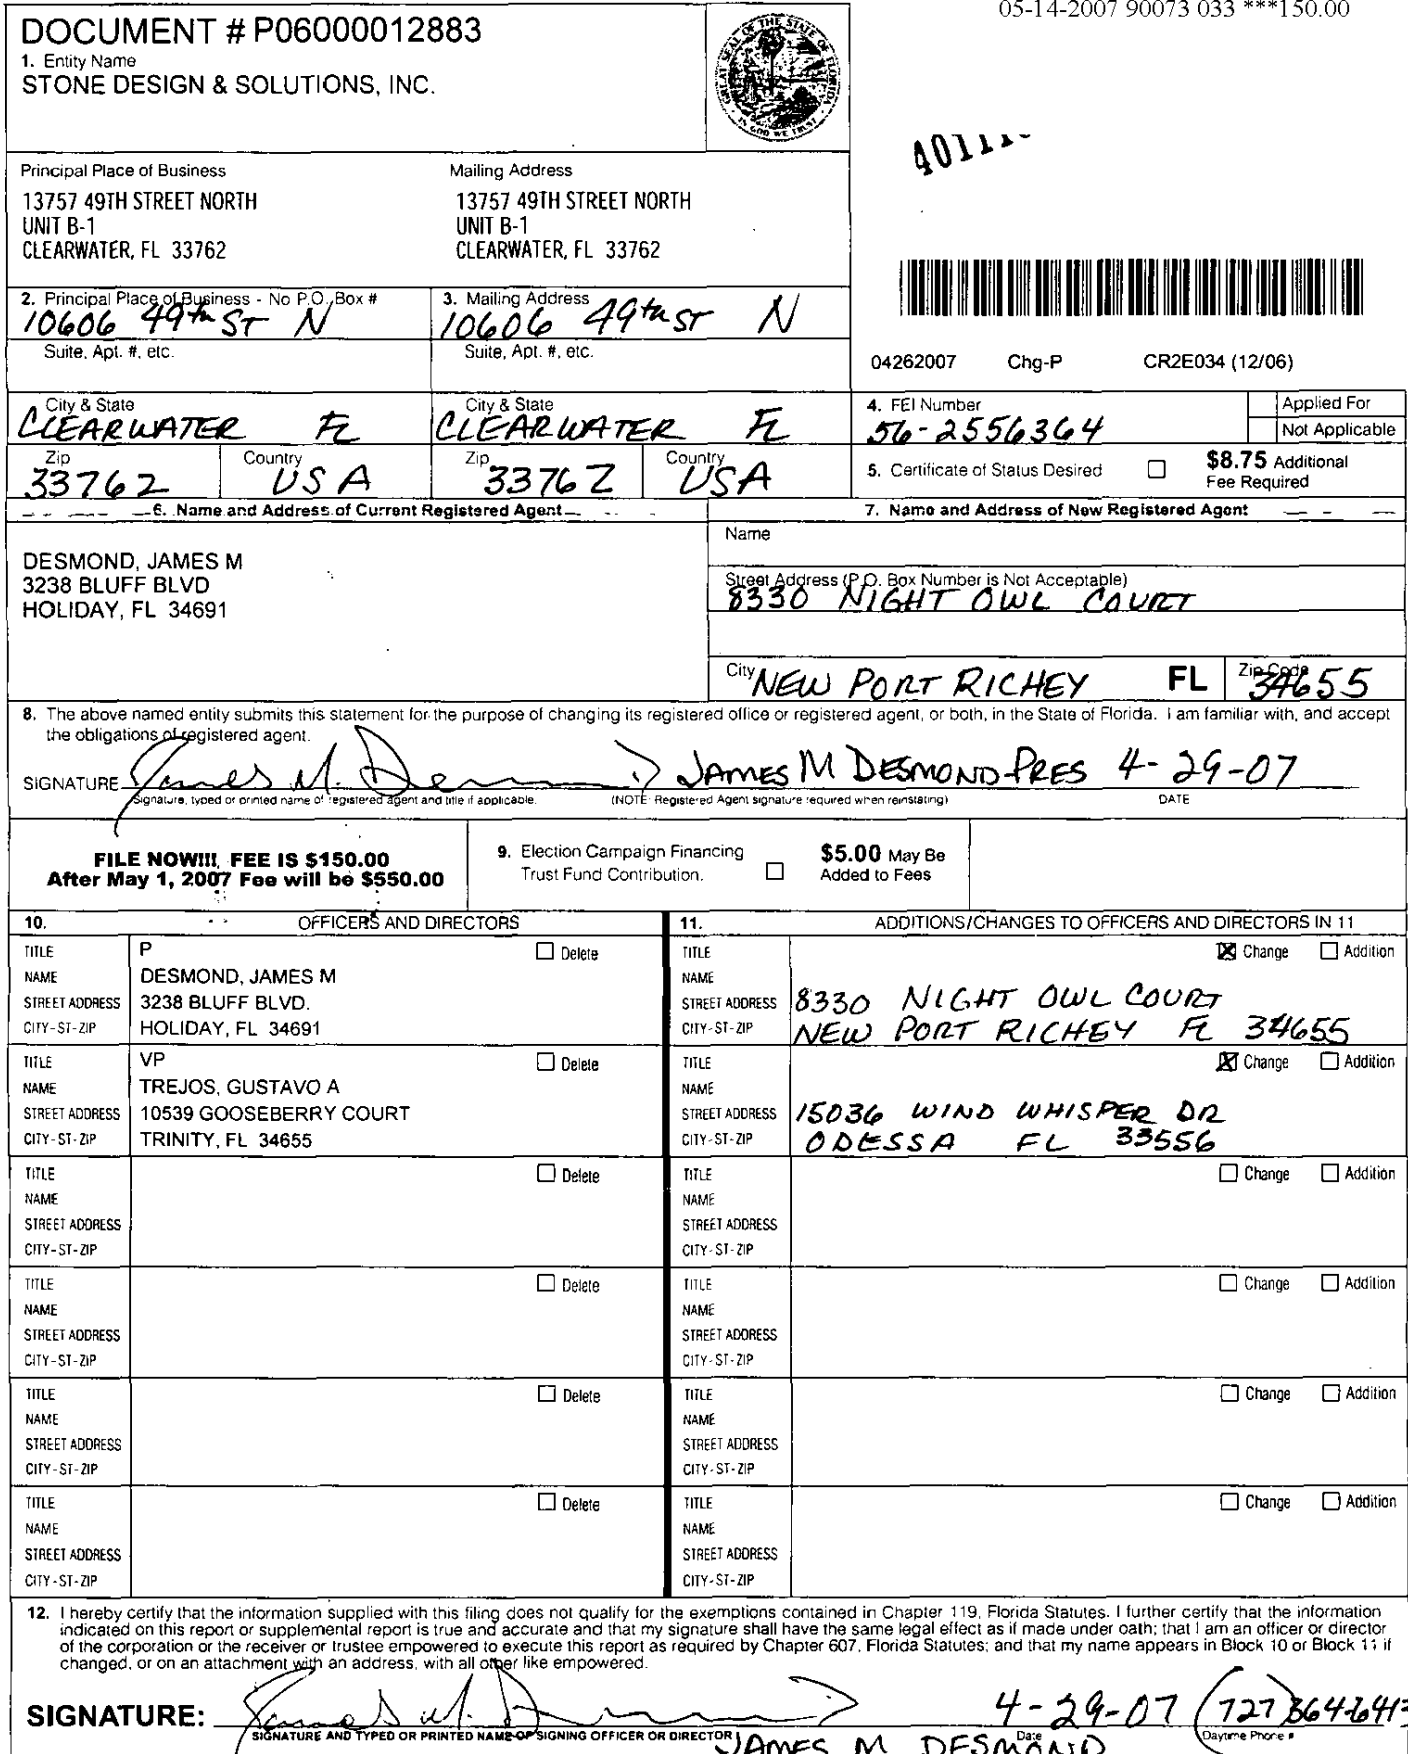 05-14-2007 90073 033 ***150.00
DOCUMENT # P06000012883
1. Entity Name
STONE DESIGN & SOLUTIONS, INC.
GREAT SEAL OF THE STATE OF FLORIDA
IN GOD WE TRUST
Principal Place of Business
13757 49TH STREET NORTH
UNIT B-1
CLEARWATER, FL 33762
Mailing Address
13757 49TH STREET NORTH
UNIT B-1
CLEARWATER, FL 33762
2. Principal Place of Business - No P.O. Box #
10606 49th ST N
Suite, Apt. #, etc.
City & State
CLEARWATER FL
Zip
33762
Country
USA
3. Mailing Address
10606 49th ST N
Suite, Apt. #, etc.
City & State
CLEARWATER FL
Zip
33762
Country
USA
04262007 Chg-P CR2E034 (12/06)
4. FEI Number
56-2556364
Applied For
Not Applicable
5. Certificate of Status Desired
$8.75 Additional
Fee Required
6. Name and Address of Current Registered Agent
DESMOND, JAMES M
3238 BLUFF BLVD
HOLIDAY, FL 34691
7. Name and Address of New Registered Agent
Name
Street Address (P.O. Box Number is Not Acceptable)
8330 NIGHT OWL COURT
City NEW PORT RICHEY FL Zip Code 34655
8. The above named entity submits this statement for the purpose of changing its registered office or registered agent, or both, in the State of Florida. I am familiar with, and accept
the obligations of registered agent.
SIGNATURE James M. Desmond JAMES M DESMOND-PRES 4-29-07
Signature, typed or printed name of registered agent and title if applicable. (NOTE: Registered Agent signature required when reinstating) DATE
FILE NOW!!! FEE IS $150.00
After May 1, 2007 Fee will be $550.00
9. Election Campaign Financing
Trust Fund Contribution.
$5.00 May Be
Added to Fees
10. OFFICERS AND DIRECTORS
TITLE P Delete
NAME DESMOND, JAMES M
STREET ADDRESS 3238 BLUFF BLVD.
CITY-ST-ZIP HOLIDAY, FL 34691
TITLE VP Delete
NAME TREJOS, GUSTAVO A
STREET ADDRESS 10539 GOOSEBERRY COURT
CITY-ST-ZIP TRINITY, FL 34655
TITLE Delete
NAME
STREET ADDRESS
CITY-ST-ZIP
TITLE Delete
NAME
STREET ADDRESS
CITY-ST-ZIP
TITLE Delete
NAME
STREET ADDRESS
CITY-ST-ZIP
TITLE Delete
NAME
STREET ADDRESS
CITY-ST-ZIP
11. ADDITIONS/CHANGES TO OFFICERS AND DIRECTORS IN 11
TITLE Change Addition
NAME
STREET ADDRESS 8330 NIGHT OWL COURT
CITY-ST-ZIP NEW PORT RICHEY FL 34655
TITLE Change Addition
NAME
STREET ADDRESS 15036 WIND WHISPER DR
CITY-ST-ZIP ODESSA FL 33556
TITLE Change Addition
NAME
STREET ADDRESS
CITY-ST-ZIP
TITLE Change Addition
NAME
STREET ADDRESS
CITY-ST-ZIP
TITLE Change Addition
NAME
STREET ADDRESS
CITY-ST-ZIP
TITLE Change Addition
NAME
STREET ADDRESS
CITY-ST-ZIP
12. I hereby certify that the information supplied with this filing does not qualify for the exemptions contained in Chapter 119, Florida Statutes. I further certify that the information
indicated on this report or supplemental report is true and accurate and that my signature shall have the same legal effect as if made under oath; that I am an officer or director
of the corporation or the receiver or trustee empowered to execute this report as required by Chapter 607, Florida Statutes; and that my name appears in Block 10 or Block 11 if
changed, or on an attachment with an address, with all other like empowered.
SIGNATURE: James M. Desmond 4-29-07 (727) 364-6413
SIGNATURE AND TYPED OR PRINTED NAME OF SIGNING OFFICER OR DIRECTOR Date Daytime Phone #
JAMES M DESMOND